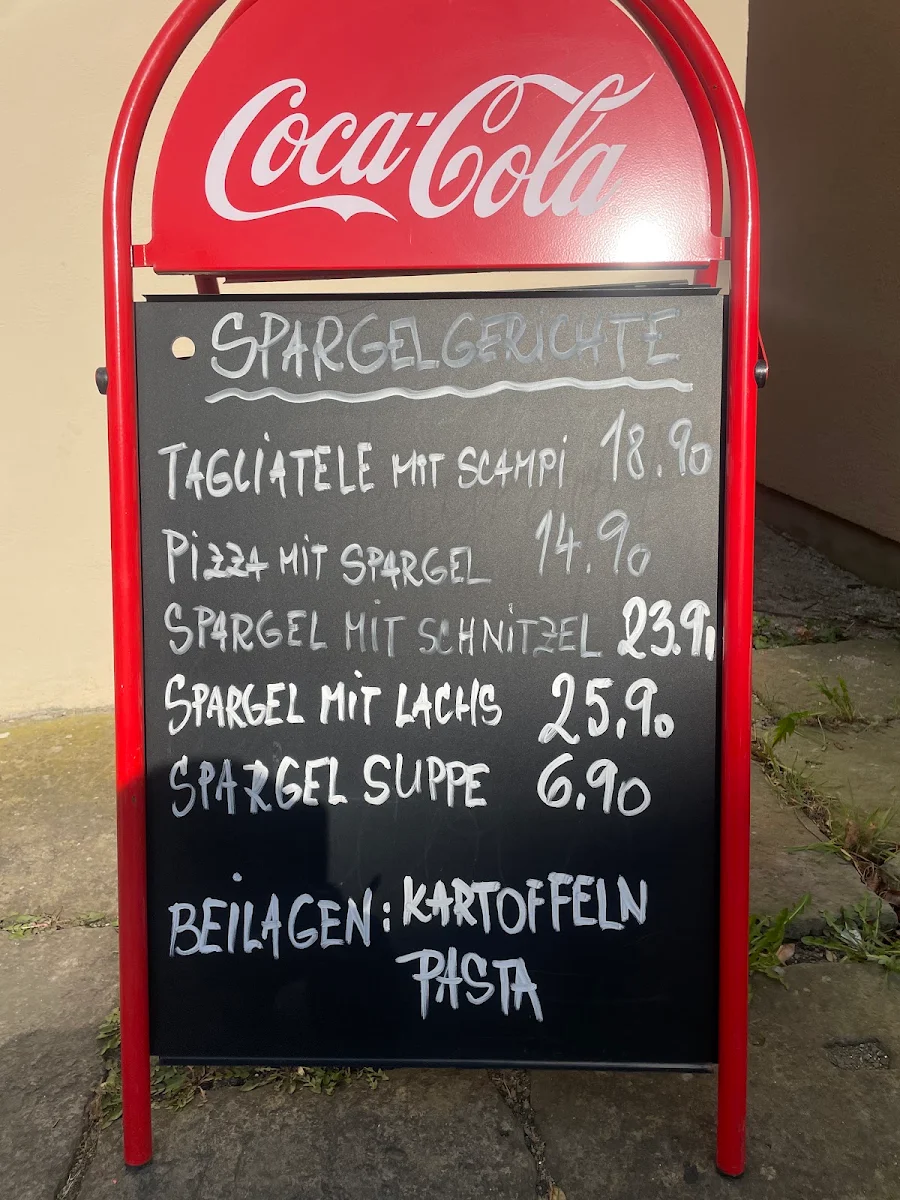 Coca-Cola
SPARGELGERICHTE
TAGLIATELE MIT SCAMPI 18.90
PIZZA MIT SPARGEL 14.90
SPARGEL MIT SCHNITZEL 23.9
SPARGEL MIT LACHS 25.90
SPARGEL SUPPE 6.90
BEILAGEN: KARTOFFELN
PASTA